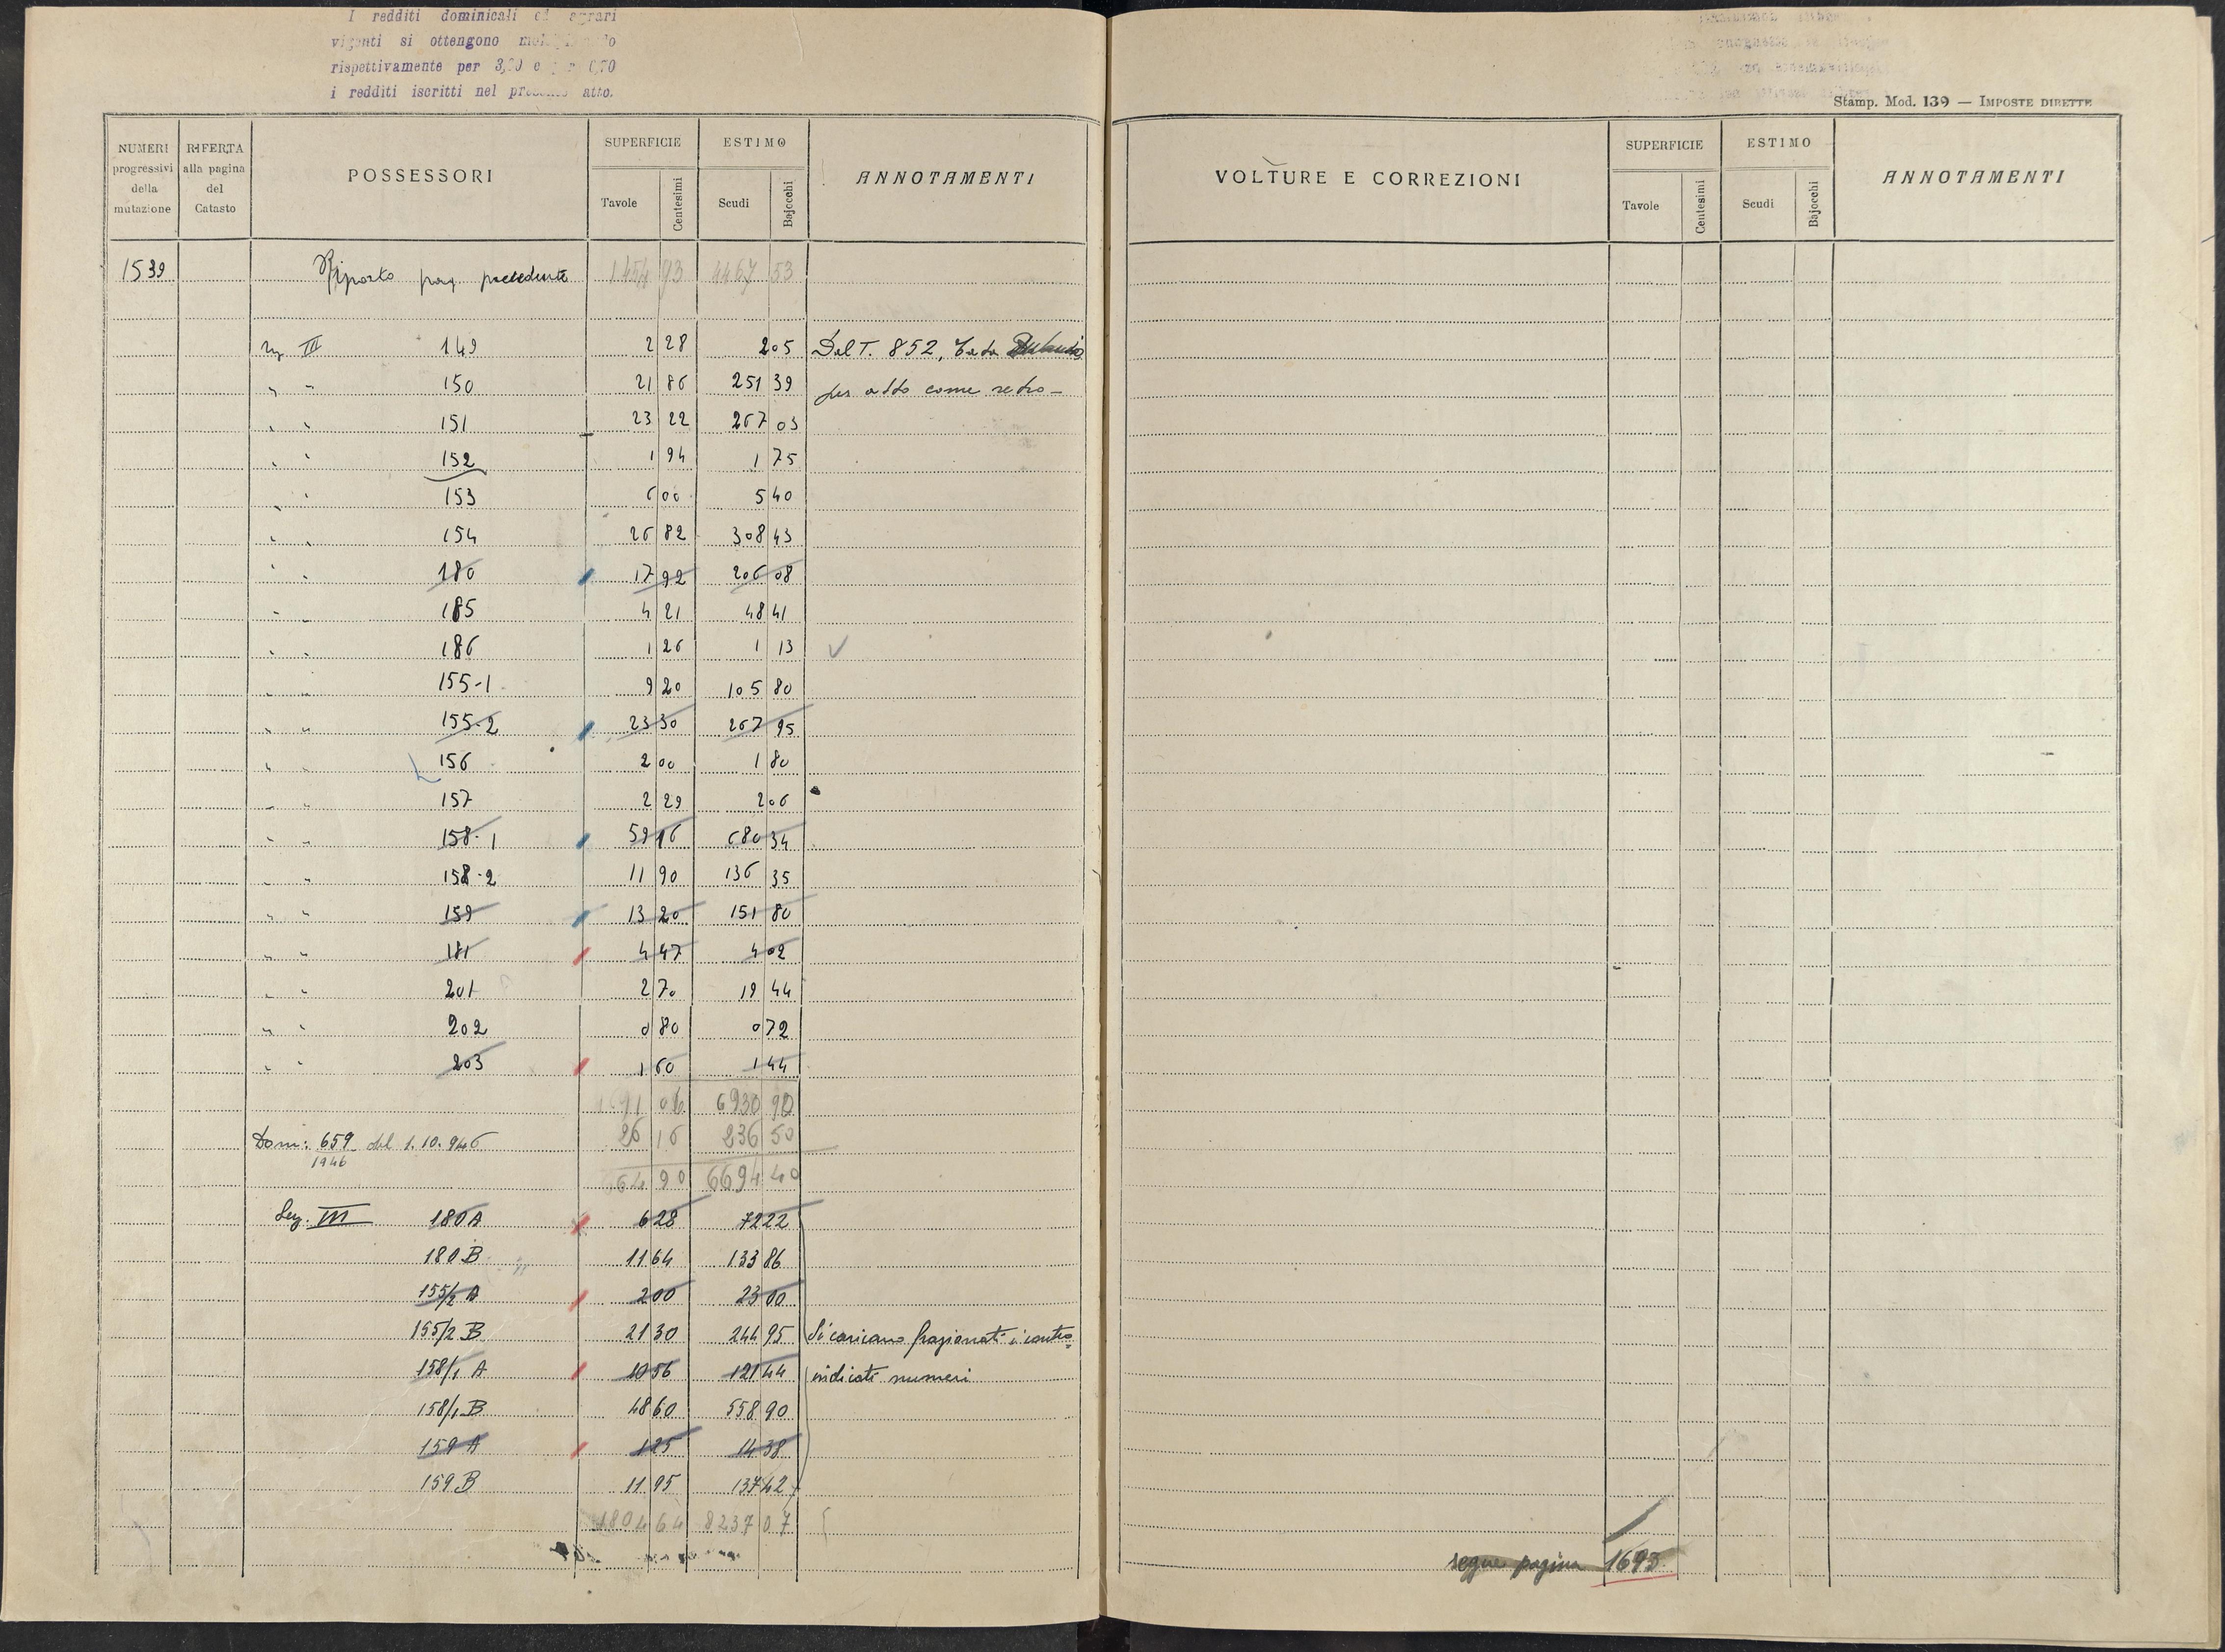 I redditi dominicali ed agrari
vigenti si ottengono
rispettivamente per 3,70 e per 0,70
i redditi iscritti nel presente atto.
Stamp. Mod. 139 — IMPOSTE DIRETTE
NUMERI progressivi della mutazione | RIFERTA alla pagina del Catasto | POSSESSORI | SUPERFICIE Tavole Centesimi | ESTIMO Scudi Bajocchi | ANNOTAMENTI
1539 Riporto pag. precedente 1454 93 4467 53
Sez III 149 2 28 2 05 Dal T. 852,
" " 150 21 86 251 39 per atto come retro -
" " 151 23 22 267 03
" " 152 1 94 1 75
" " 153 6 00 5 40
" " 154 26 82 308 43
" " 180 17 92 206 08
" " 185 4 21 48 41
" " 186 1 26 1 13
" " 155-1 9 20 105 80
" " 155-2 23 30 267 95
" " 156 2 00 1 80
" " 157 2 29 2 06
" " 158-1 59 16 680 34
" " 158-2 11 90 136 35
" " 159 13 20 151 80
" " 181 4 47 4 02
" " 201 2 70 19 44
" " 202 0 80 0 72
" " 203 1 60 1 44
1691 06 6930 90
Dom: 659/1946 del 1.10.946 26 16 236 50
1664 90 6694 40
Sez. III 180 A 6 28 72 22
180 B 11 64 133 86
155/2 A 2 00 23 00
155/2 B 21 30 244 95 Si caricano frazionati i contro
158/1 A 10 56 121 44 indicati numeri
158/1 B 48 60 558 90
159 A 1 25 14 38
159 B 11 95 137 42
1804 64 8237 07
VOLTURE E CORREZIONI | SUPERFICIE Tavole Centesimi | ESTIMO Scudi Bajocchi | ANNOTAMENTI
segue pagina 1693